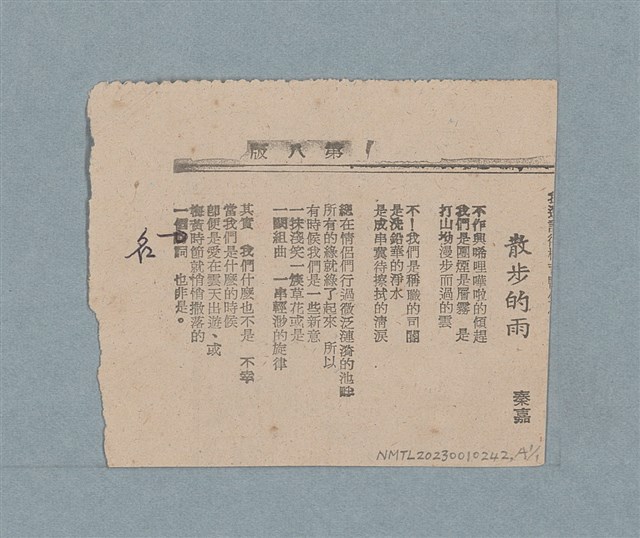 第八版
散步的雨
秦嘉
不作興唏哩嘩啦的傾趕
我們是團煙是層霧 是
打山坳漫步而過的雲
不!我們是稱職的司閽
是洗鉛華的淨水
是成串冀待擦拭的清淚
總在情侶們行過微泛漣漪的池畔
所有的綠就綠了起來 所以
有時候我們是一些新意
一抹淺笑一簇草花或是
一闋組曲 一串輕渺的旋律
其實 我們什麼也不是 不幸
當我們是什麼的時候
即便是愛在雲天出遊、或
梅黃時節就悄悄撒落的
一個 詞 也非是。
名
NMTL20230010242, A1/1